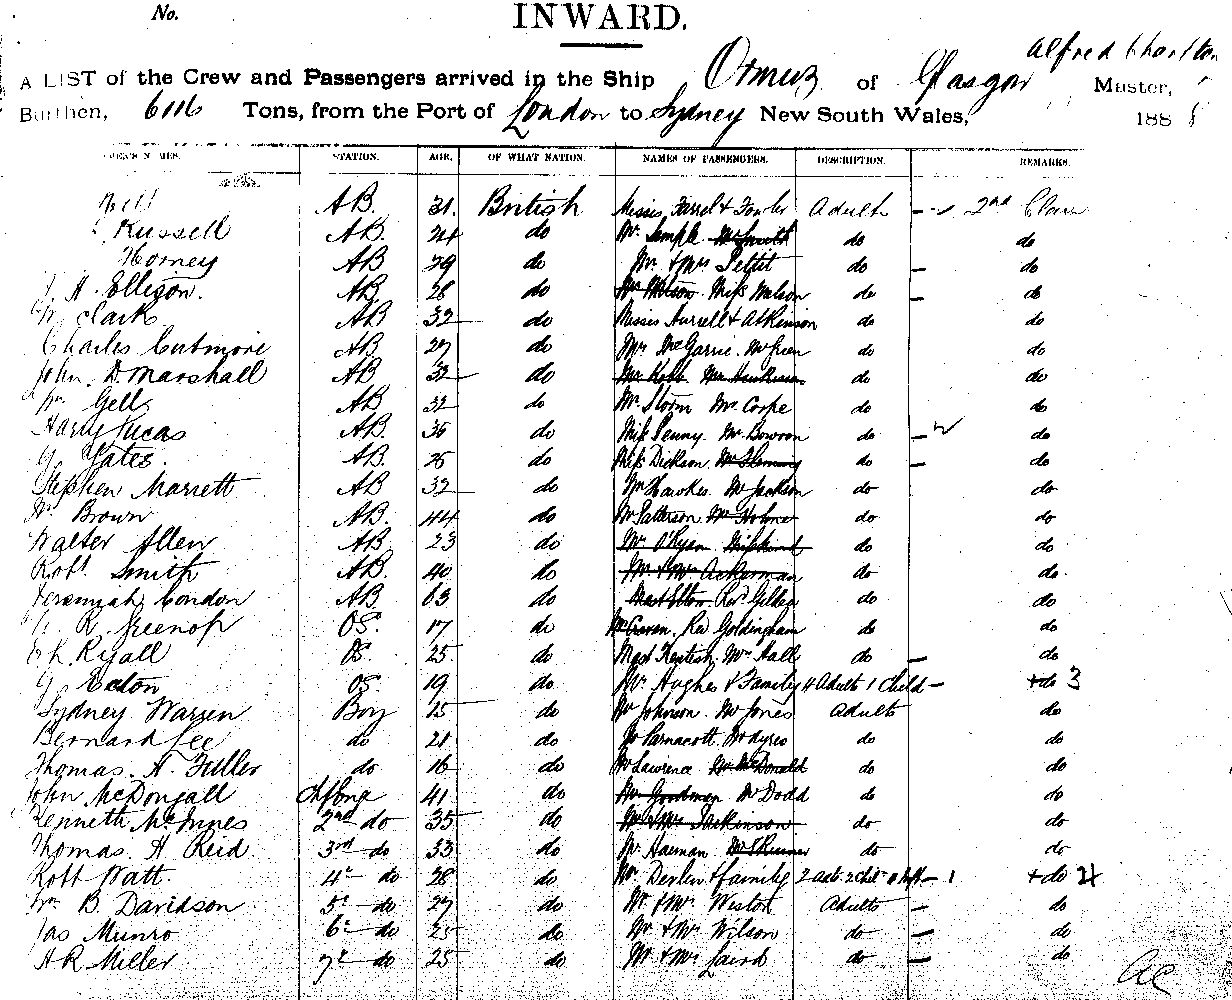 No.
INWARD.
Alfred Charlton
A LIST of the Crew and Passengers arrived in the Ship Ormuz of Glasgow Master,
Burthen, 6116 Tons, from the Port of London to Sydney New South Wales, 188
STATION. AGE. OF WHAT NATION. NAMES OF PASSENGERS. DESCRIPTION. REMARKS.
AB. 31. British Messrs Farrel & Fowler Adults 2nd Class
Russell AB. 24 do Mr. Semple Mr Smith do do
Horney AB 29 do Mr & Mrs Pettit do do
H. Ellison. AB 28 do Miss Watson do do
Wm Clark AB 32 do Messrs & Atkinson do do
Charles Cutmore AB 27 do Mr McGarrie. Mr Green do do
John. D. Marshall AB 32 do Mr Robb do do
Wm Gell AB 32 do Mr Storm Mr. Corpe do do
Harry Lucas AB. 36 do Miss Penny. Mr Bowron do do
G. Yates AB. 25 do Miss Dickson Mr Fleming do do
Stephen Marrett AB 32 do Mr Hawkes Mr Jackson do do
Wm Brown AB. 44 do Mr Patterson Mr Holme do do
Walter Allen AB. 23 do Mr O'Ryan do do
Robt. Smith AB. 40 do Mr & Mrs Ackerman do do
Jeremiah Condon AB 63 do Revd do do
R. Greenop OS. 17 do Mr Craven. Rev Goldingham do do
Ch. Ryall OS. 25 do Mad Kentish Mrs Hall do do
G Ecton OS 19 do Mr. Hughes & Family 4 Adults 1 Child +do 3
Sydney Warren Boy 15 do Mr Johnson. Mr Jones Adults do
Bernard Lee do 21 do Parnacott. do do
Thomas. A. Fuller do 16 do Mr Lawrence Mr McDonald do do
John McDougall 41 do Mr Goodman Mr Dodd do do
Kenneth McInnes 2nd do 35 do Mr & Mrs Parkinson do do
Thomas. A Reid. 3rd do 33 do Mr. Haeman Mr Skinner do do
Robt Watt. 4th do 28 do & family 1 +do 4
Wm B. Davidson 5th do 27 do Mr & Mrs Weston Adults do
Jas Munro 6th do 25 do Mr & Mrs Wilson do do
A R Miller 7th do 25 do Mr & Mrs Laird do do